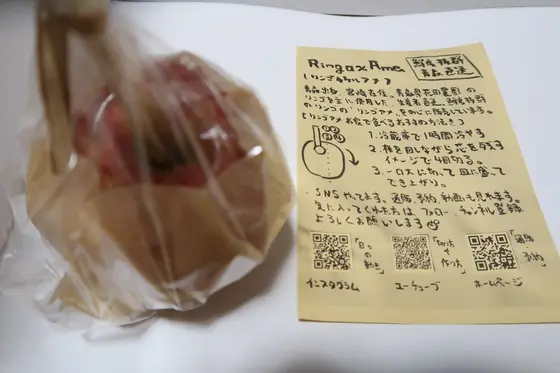 Ringo x Ame
鮮度抜群
青森直送
(リンゴカケルアメ)
青森出身、宮崎在住。青森県花田農園の
リンゴを主に使用した、生産者直送、鮮度抜群
のリンゴの"リンゴアメ"を中心に販売しています。
【リンゴアメお家で食べるおすすめ方法!】
1.冷蔵庫で1時間冷やす
2.棒を回しながら花を咲かす
イメージで4回切る。
3.一口大に切って皿に盛って
でき上がり。
SNSやってます。通販、予約、動画も見れます。
気に入ってくれた方はフォロー、チャンネル登録
よろしくお願いします
「日々の動き」
「切り方 作り方」
「通販 予約」
インスタグラム
ユーチューブ
ホームページ